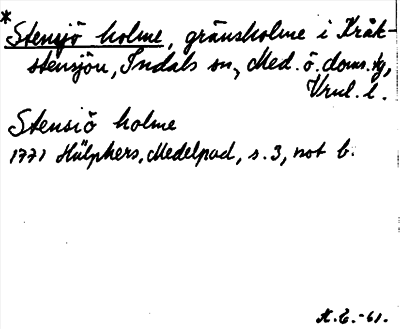 * Stensjö holme, gränsholme i Kråk-
stensjön, Indals sn, Med. ö. doms.tg,
Vrnl. l.
Stensiö holme
1771 Hülphers, Medelpad, s. 3, not b.
K.E.-61.